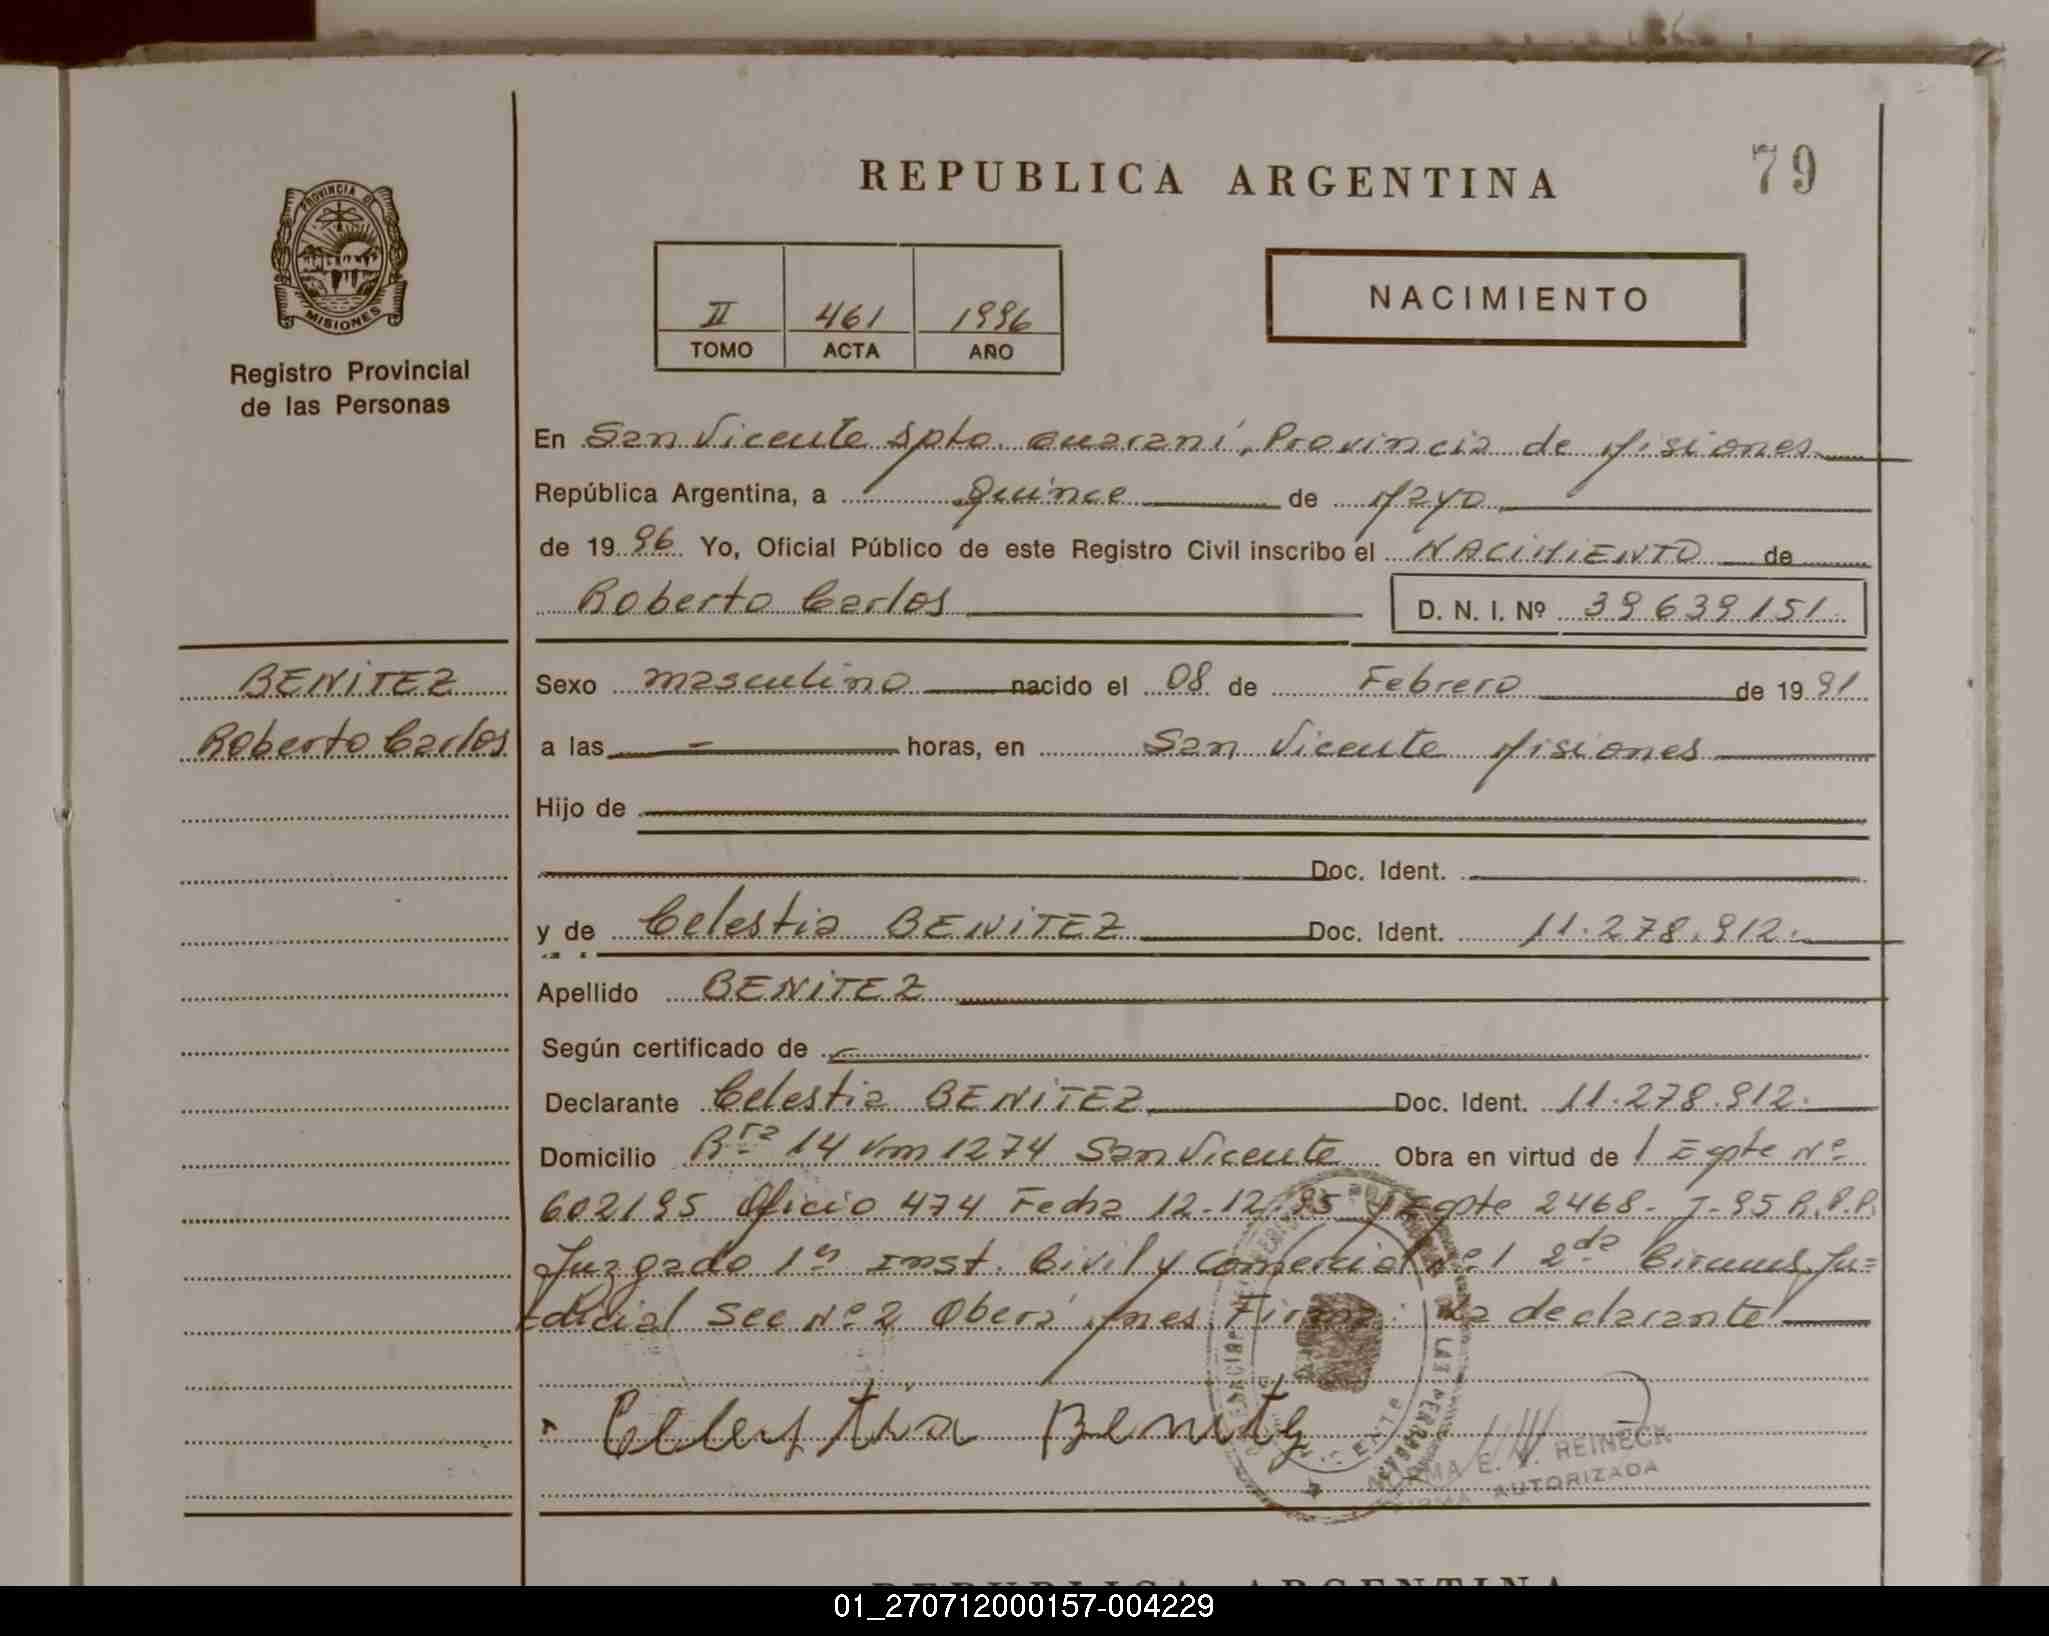 REPUBLICA ARGENTINA
79
PROVINCIA DE
MISIONES
Registro Provincial
de las Personas
II 461 1996
TOMO ACTA AÑO
NACIMIENTO
En San Vicente Dpto. Guaraní, Provincia de Misiones
República Argentina, a Quince de Mayo
de 1996 Yo, Oficial Público de este Registro Civil inscribo el NACIMIENTO de
Roberto Carlos D. N. I. Nº 39639151
BENITEZ
Roberto Carlos
Sexo masculino nacido el 08 de Febrero de 1991
a las - horas, en San Vicente Misiones
Hijo de
Doc. Ident.
y de Celestia BENITEZ Doc. Ident. 11.278.912.
Apellido BENITEZ
Según certificado de
Declarante Celestia BENITEZ Doc. Ident. 11.278.912.
Domicilio Rta 14 Km 1274 San Vicente Obra en virtud de 1 Expte Nº
602195 Oficio 474 Fecha 12-12-95 y Expte 2468- J-95 R.P.P.
Juzgado 1ª Inst. Civil y Comercial Nº 1 2da Circuns. Ju=
dicial Sec Nº 2 Oberá Mnes. Firma: La declarante
Celestia Benitz
E. V. REINECK
FIRMA AUTORIZADA
REPUBLICA ARGENTINA
01_270712000157-004229